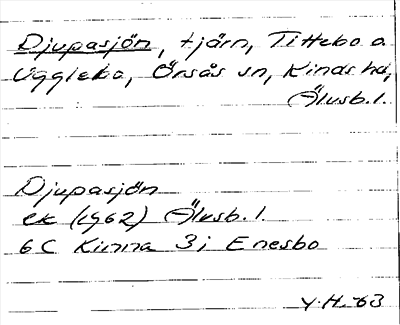 Djupasjön, tjärn, Tittebo o.
Ugglebo, Örsås sn, Kinds hd,
Älvsb. l.
Djupasjön
ek (1962) Älvsb. l.
6 C Kinna 3 i Enesbo
Y. H. -63